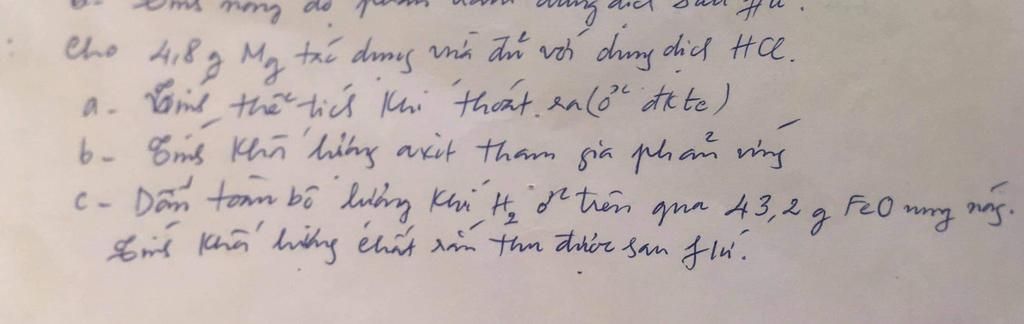 b- Tính nồng độ phần trăm dung dịch sau
Cho 4,8 g Mg tác dụng vừa đủ với dung dịch HCl.
a- Tính thể tích khí thoát ra (ở đktc)
b- Tính khối lượng axit tham gia phản ứng
c- Dẫn toàn bộ lượng khí H2 ở trên qua 43,2 g FeO nung nóng.
Tính khối lượng chất rắn thu được sau